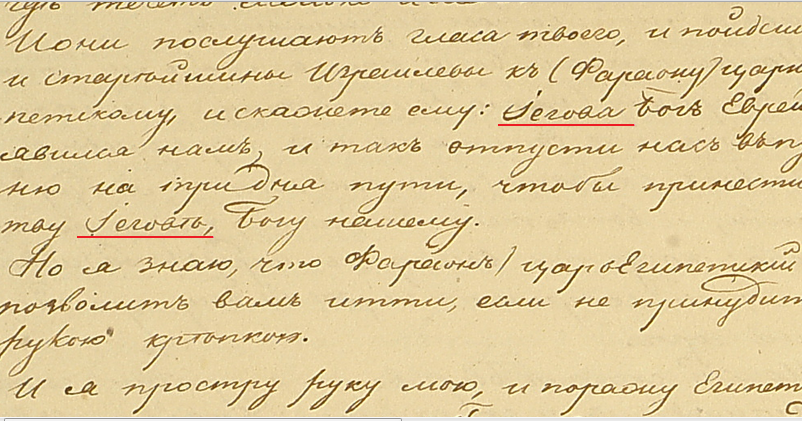 И они послушаютъ гласа твоего, и пойдеш
и старѣйшины Израилевы къ (Фараону) царю
петскому, и скажете ему: Іегова Богъ Евре
явился намъ, и такъ отпусти насъ въ пу
ню на три дня пути, чтобы принести
тву Іеговѣ, Богу нашему.
Но я знаю, что Фараонъ) царь Египетскій
позволитъ вамъ итти, если не принудит
рукою крѣпкою.
И я простру руку мою, и поражу Египет